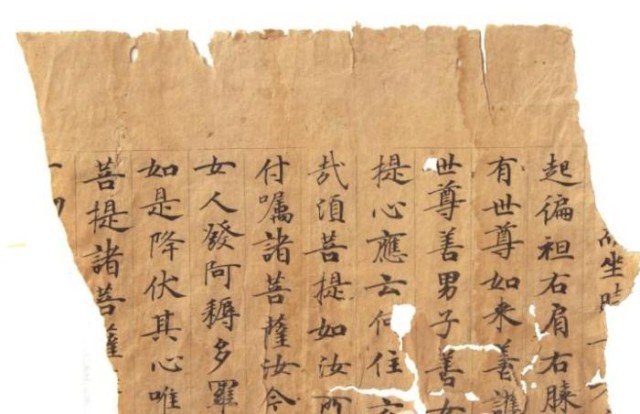 坐時
起徧袒右肩右膝
有世尊如来善護
世尊善男子善女
提心應云何住
哉湏菩提如汝所
付囑諸菩薩汝今
女人發阿耨多羅
如是降伏其心唯
菩提諸菩薩
一